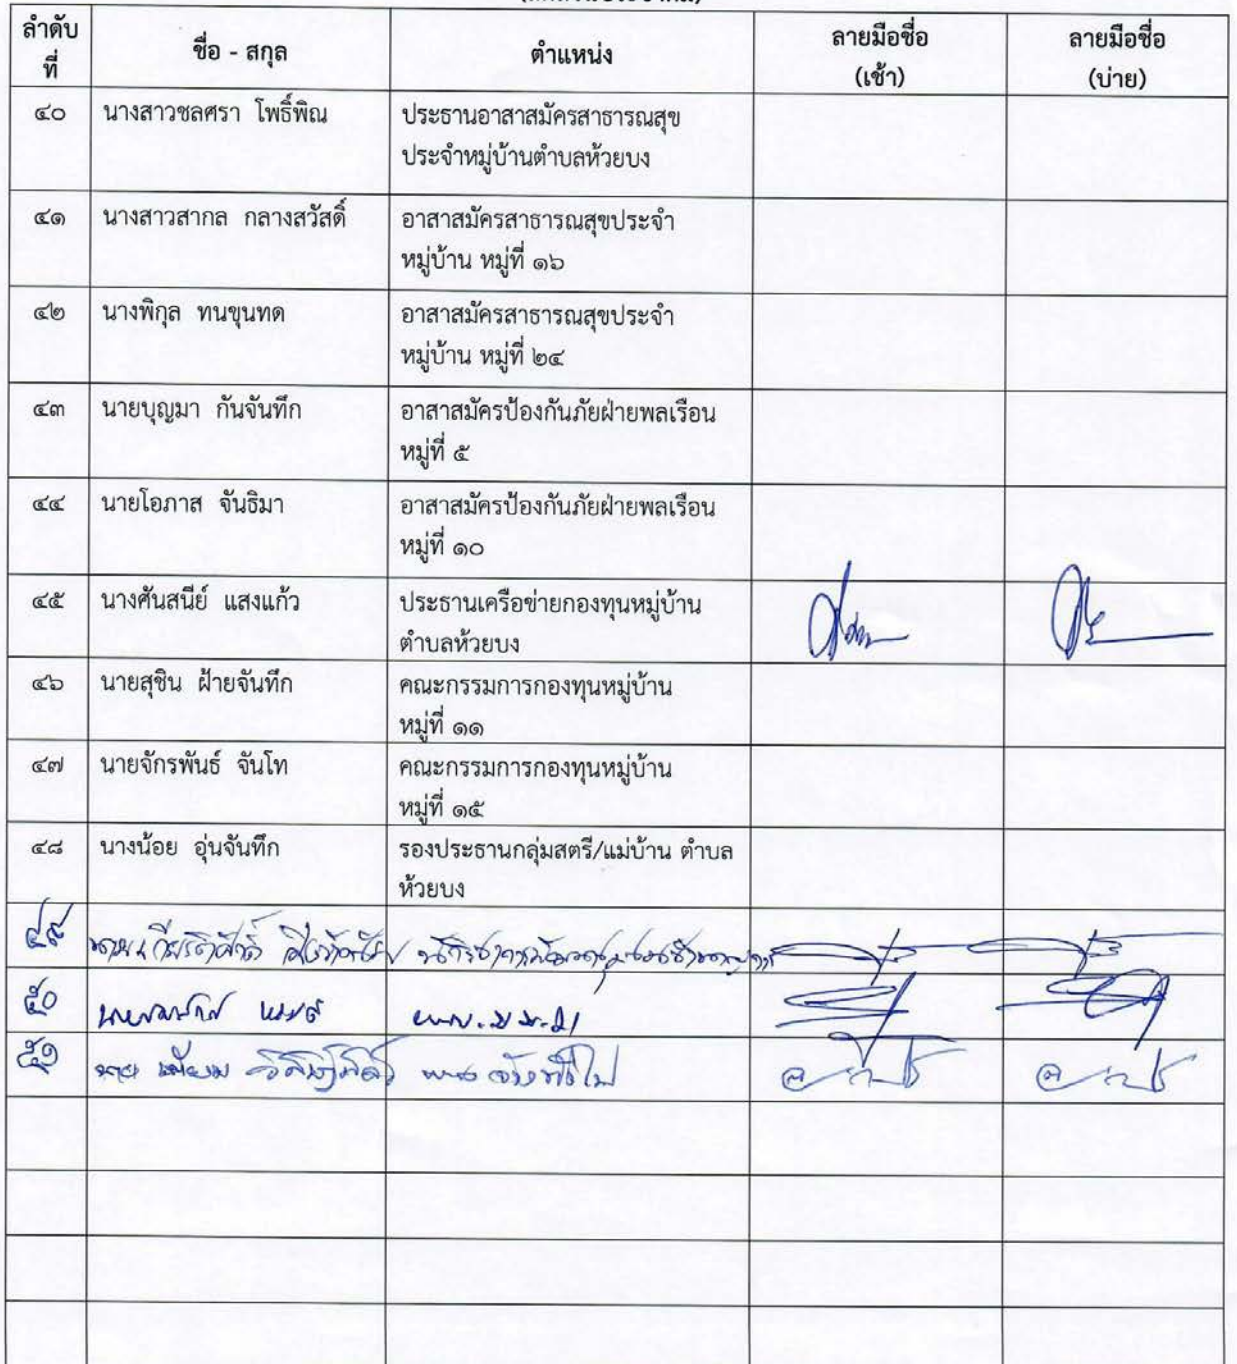 ลำดับ ชื่อ - สกุล ตำแหน่ง ลายมือชื่อ ลายมือชื่อ
ที่ (เช้า) (บ่าย)
๔๐ นางสาวชลศรา โพธิ์พิณ ประธานอาสาสมัครสาธารณสุข
ประจำหมู่บ้านตำบลห้วยบง
๔๑ นางสาวสากล กลางสวัสดิ์ อาสาสมัครสาธารณสุขประจำ
หมู่บ้าน หมู่ที่ ๑๖
๔๒ นางพิกุล ทนขุนทด อาสาสมัครสาธารณสุขประจำ
หมู่บ้าน หมู่ที่ ๒๔
๔๓ นายบุญมา กันจันทึก อาสาสมัครป้องกันภัยฝ่ายพลเรือน
หมู่ที่ ๕
๔๔ นายโอภาส จันธิมา อาสาสมัครป้องกันภัยฝ่ายพลเรือน
หมู่ที่ ๑๐
๔๕ นางศันสนีย์ แสงแก้ว ประธานเครือข่ายกองทุนหมู่บ้าน
ตำบลห้วยบง
๔๖ นายสุชิน ฝ้ายจันทึก คณะกรรมการกองทุนหมู่บ้าน
หมู่ที่ ๑๑
๔๗ นายจักรพันธ์ จันโท คณะกรรมการกองทุนหมู่บ้าน
หมู่ที่ ๑๕
๔๘ นางน้อย อุ่นจันทึก รองประธานกลุ่มสตรี/แม่บ้าน ตำบล
ห้วยบง
๔๙
๕๐
๕๑ นาย